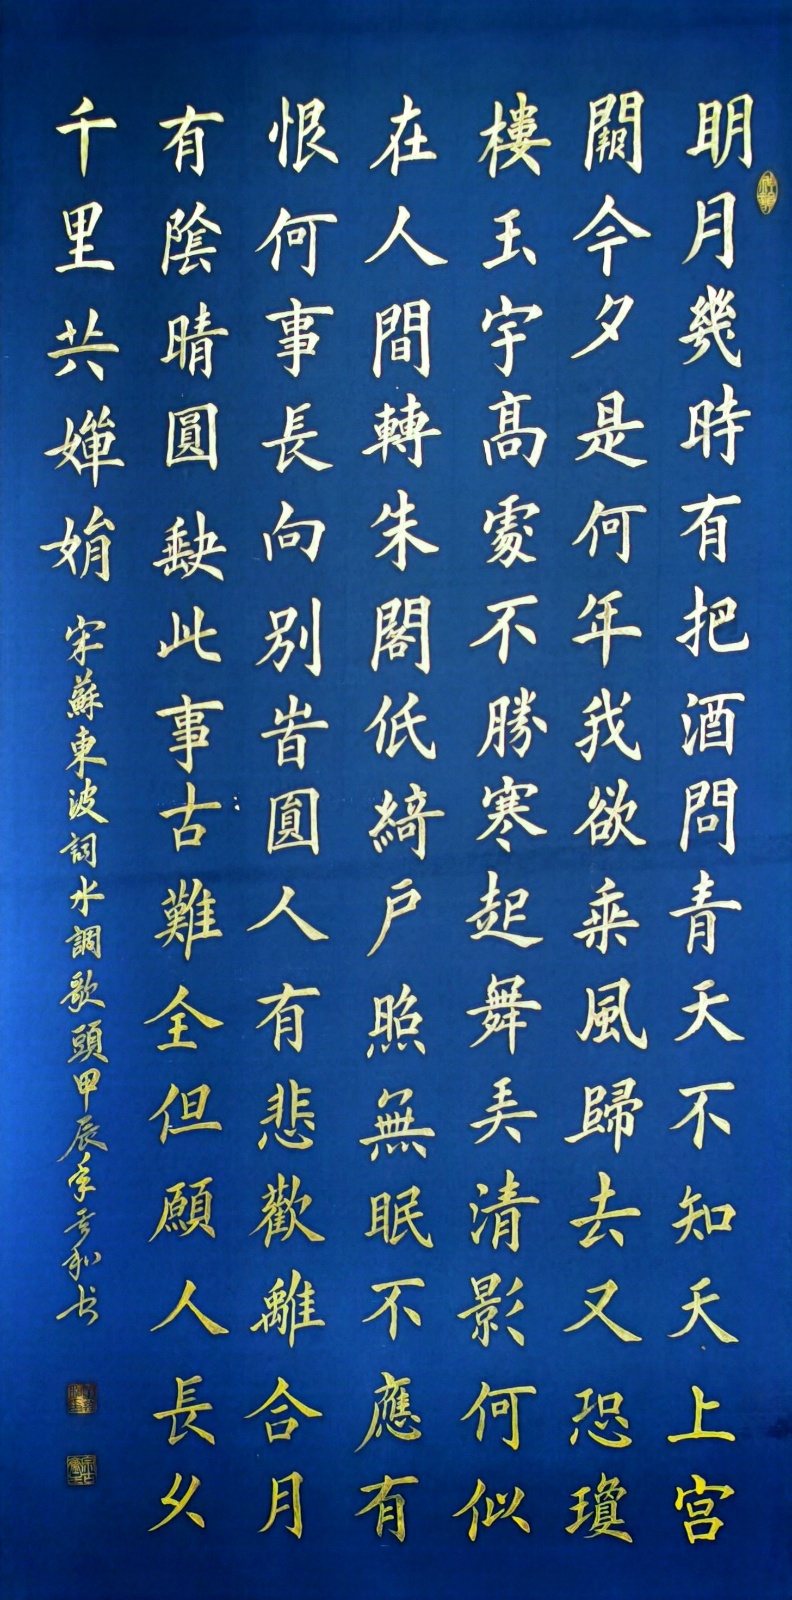 明月幾時有把酒問青天不知天上宫
闕今夕是何年我欲乘風歸去又恐瓊
樓玉宇高處不勝寒起舞弄清影何似
在人間轉朱閣低綺戶照無眠不應有
恨何事長向別旹圓人有悲歡離合月
有陰晴圓缺此事古難全但願人長久
千里共嬋娟
宋蘇東波詞水調歌頭甲辰年 和书